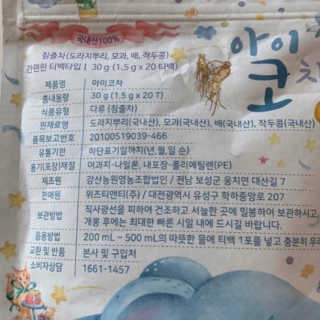 국내산100%
침출차(도라지뿌리, 모과, 배, 작두콩)
간편한 티백타입 | 30 g (1.5 g x 20 티백)
아이
코
제품명 아이코차
총내용량 30 g (1.5 g x 20 T)
식품유형 다류 (침출차)
원재료명 도라지뿌리(국내산), 모과(국내산), 배(국내산), 작두콩(국내산)
품목보고번호 20100519039-466
유통기한 하단표기일까지(년,월,일 순)
용기(포장)재질 여과지-나일론, 내포장-폴리에틸렌(PE)
제조원 강산농원영농조합법인 / 전남 보성군 웅치면 대산길 7
판매원 위즈티앤티(주) / 대전광역시 유성구 학하중앙로 207
보관방법 직사광선을 피하여 건조하고 서늘한 곳에 밀봉하여 보관하시고,
개봉 후에는 최대한 빠른 시일 내에 드시길 바랍니다.
음용방법 200 mL ~ 500 mL의 따뜻한 물에 티백 1포를 넣고 충분히 우려
교환 및 반품 본사 및 구입처
소비자상담 1661-1457